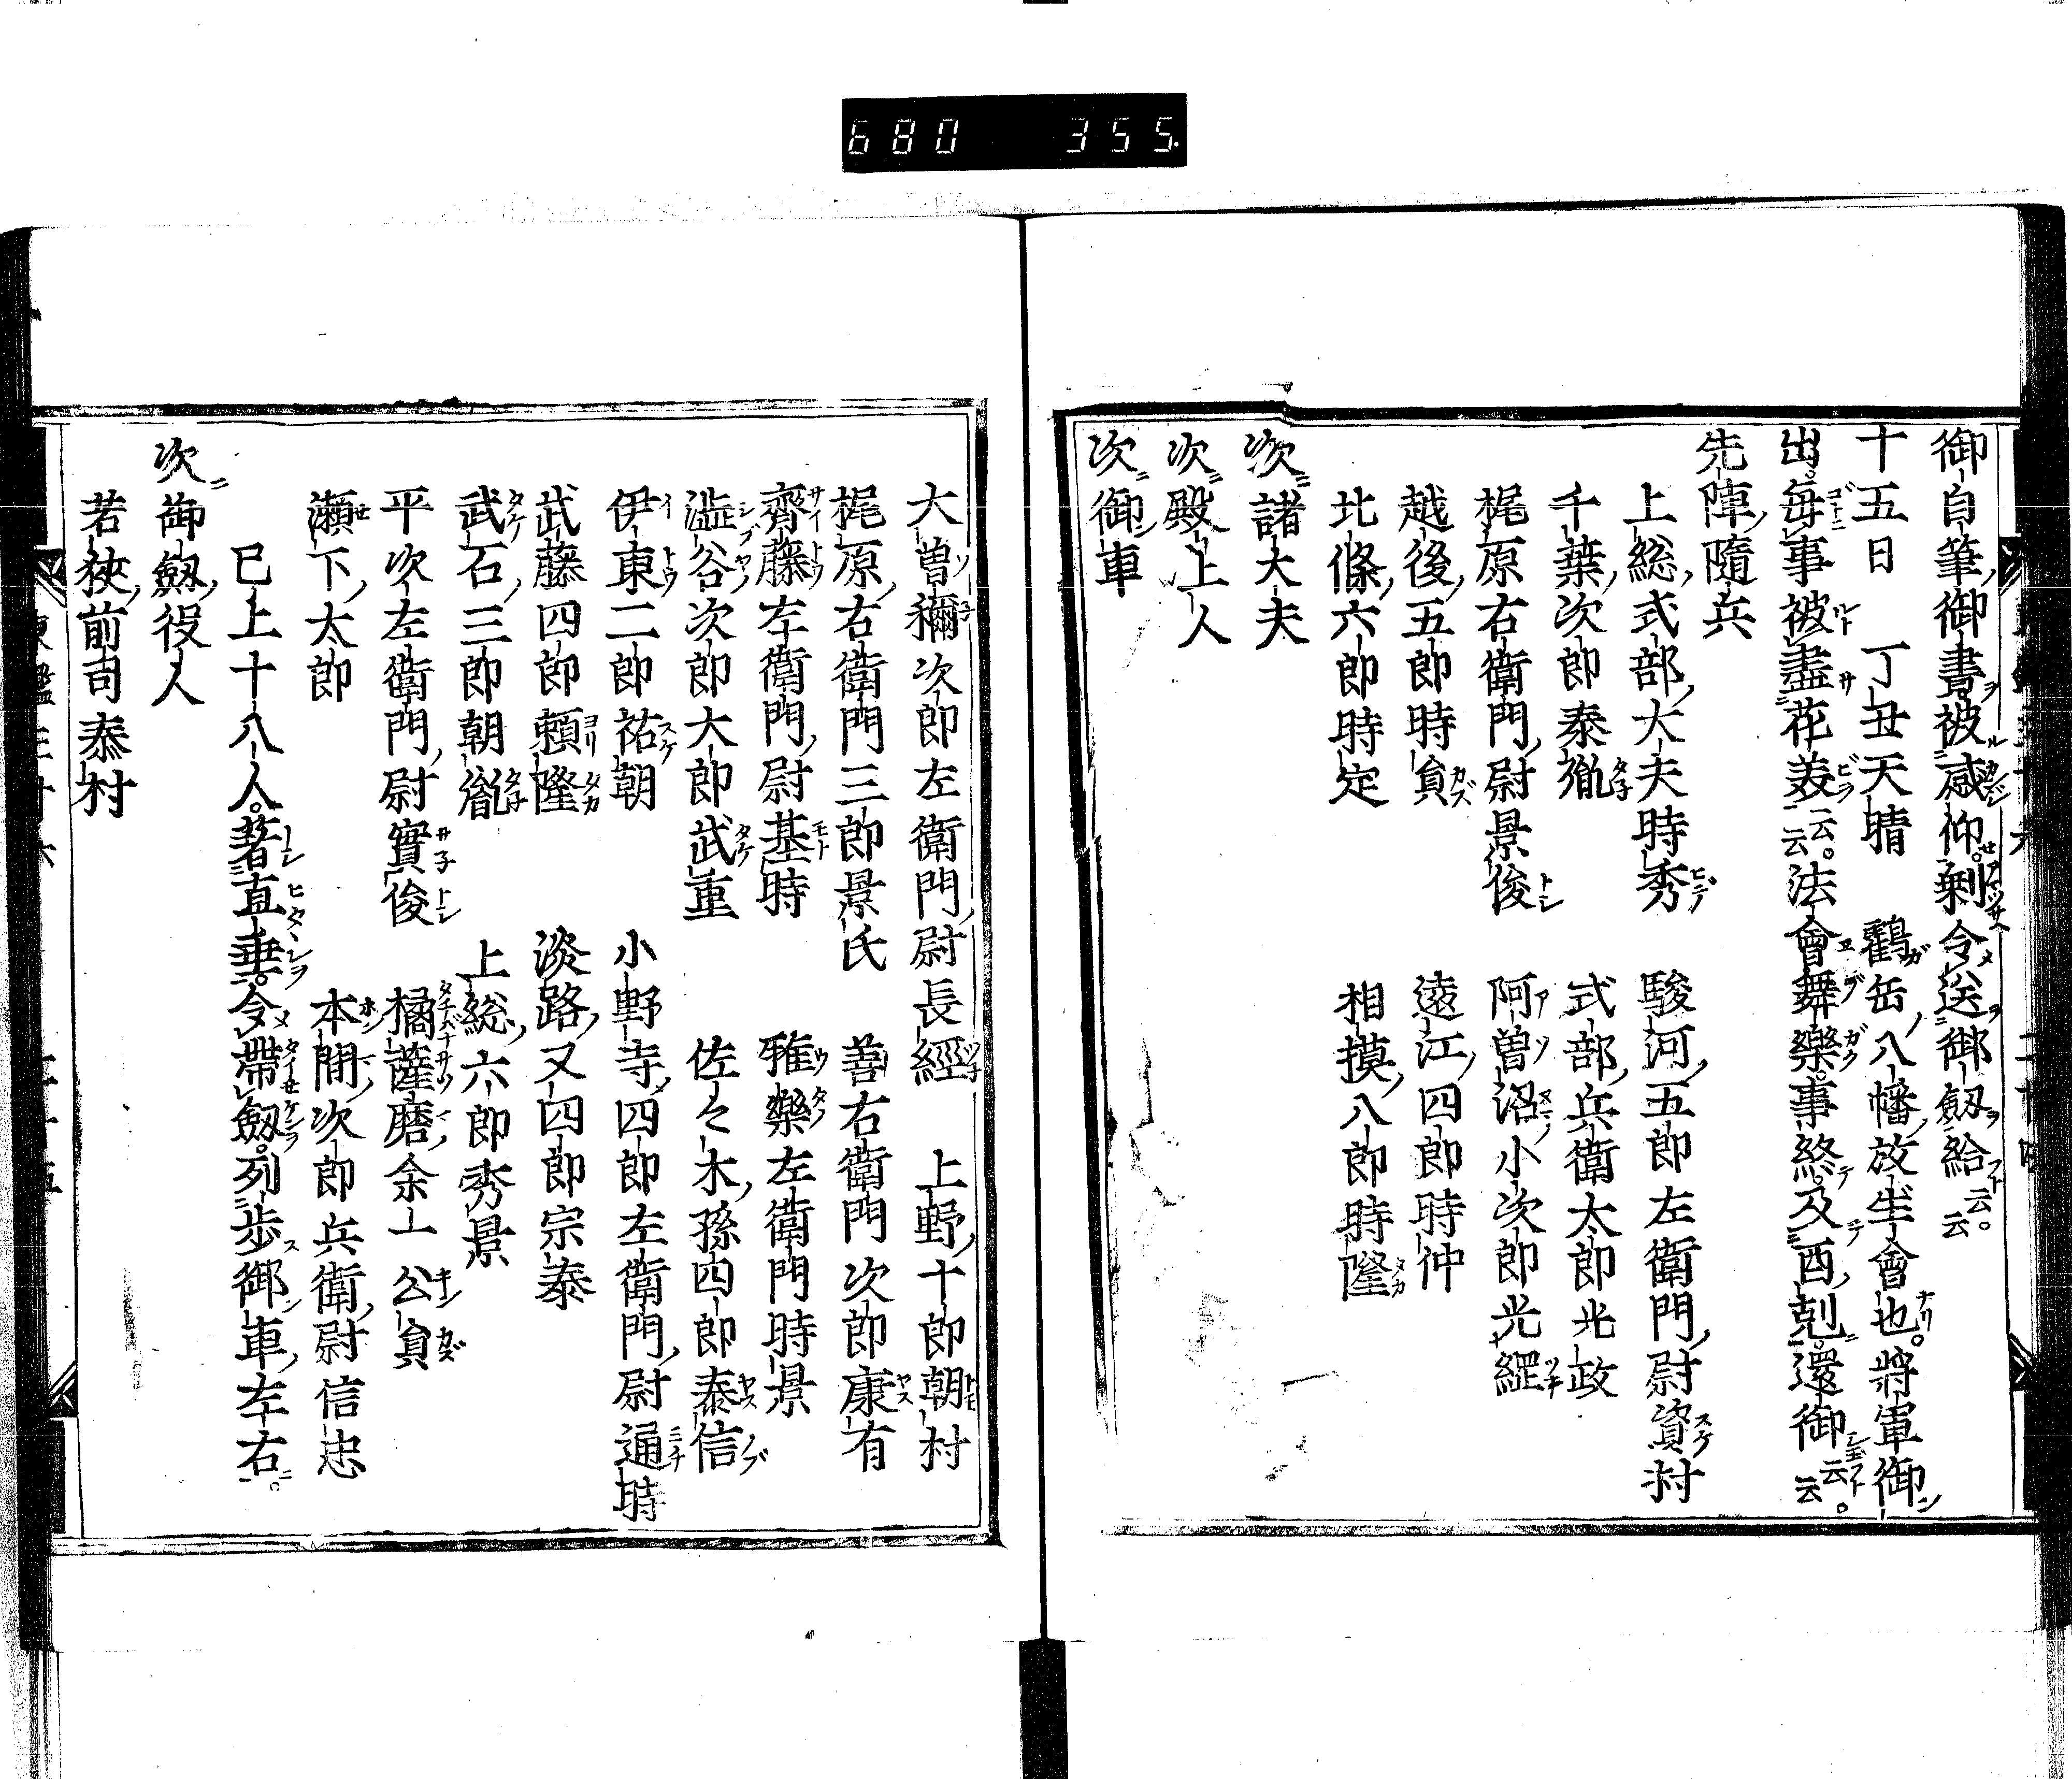 680 355
御自筆御書被感仰剰令送御劔給云云。
十五日 丁丑天晴 鶴岳八幡放生會也。將軍御
出。毎事被盡花美云云。法會舞樂。事終及酉剋還御云云。
先陣隨兵
上総式部大夫時秀 駿河五郎左衛門尉資村
千葉次郎泰胤 式部兵衛太郎光政
梶原右衛門尉景俊 阿曽沼小次郎光綱
越後五郎時員 遠江四郎時仲
北條六郎時定 相摸八郎時隆
次諸大夫
次殿上人
次御車
大曽禰次郎左衛門尉長經 上野十郎朝村
梶原右衛門三郎景氏 善右衛門次郎康有
齊藤左衛門尉基時 雅樂左衛門時景
澁谷次郎大郎武重 佐々木孫四郎泰信
伊東二郎祐朝 小野寺四郎左衛門尉通時
武藤四郎頼隆 淡路又四郎宗泰
武石三郎朝胤 上総六郎秀景
平次左衛門尉實俊 橘薩磨余一公員
瀬下太郎 本間次郎兵衛尉信忠
已上十八人。著直垂。令帶劔。列歩御車左右。
次御劔役人
若狹前司泰村